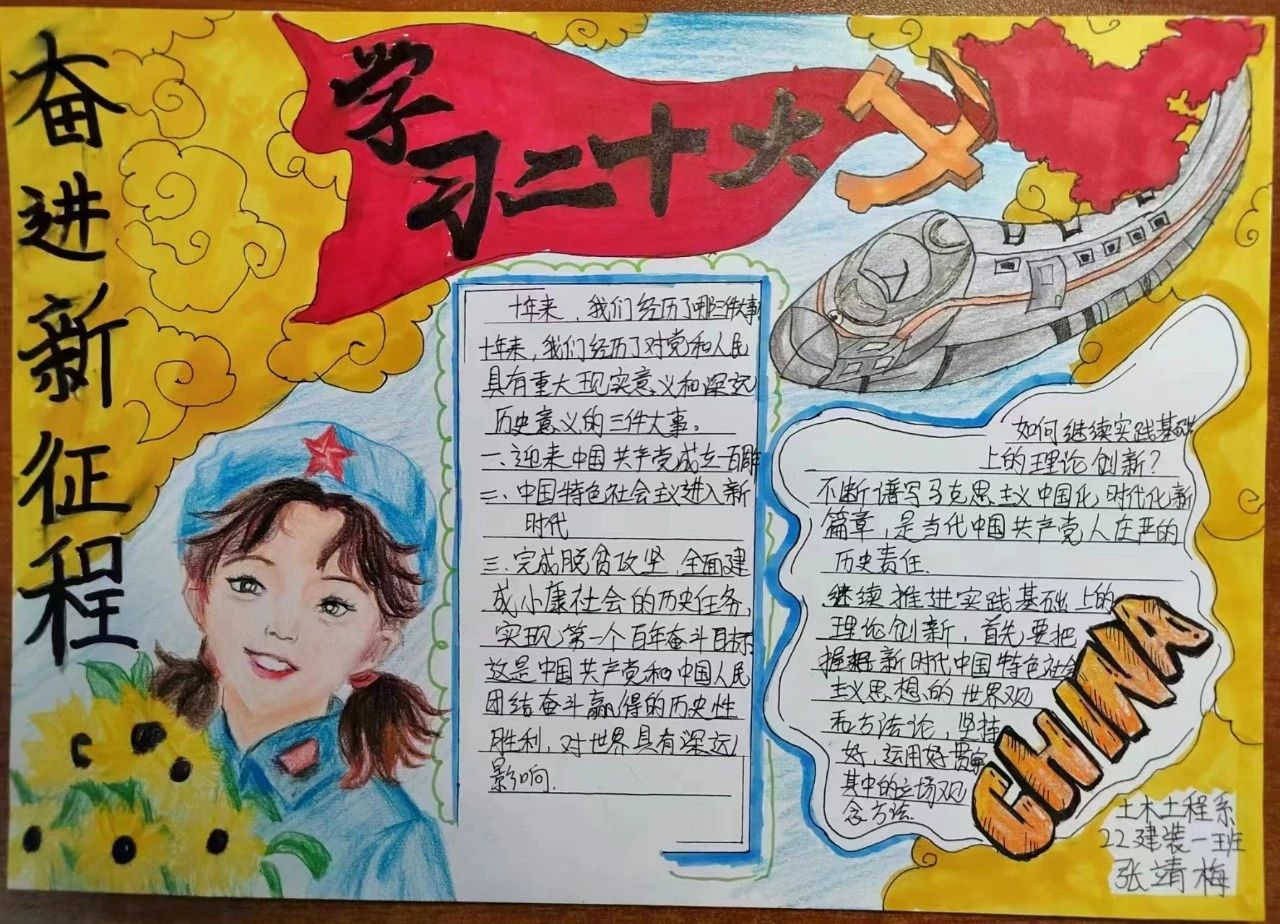 奋进新征程
学习二十大
十年来，我们经历了哪三件大事
十年来，我们经历了对党和人民
具有重大现实意义和深远
历史意义的三件大事。
一、迎来中国共产党成立一百周年
二、中国特色社会主义进入新
时代
三、完成脱贫攻坚、全面建
成小康社会的历史任务，
实现第一个百年奋斗目标
这是中国共产党和中国人民
团结奋斗赢得的历史性
胜利，对世界具有深远
影响.
如何继续实践基础
上的理论创新？
不断谱写马克思主义中国化时代化新
篇章，是当代中国共产党人庄严的
历史责任.
继续推进实践基础上的
理论创新，首先要把
握好新时代中国特色社会
主义思想的世界观
和方法论，坚持
好、运用好贯穿
其中的立场观
念方法.
CHINA
土木工程系
22建装一班
张靖梅